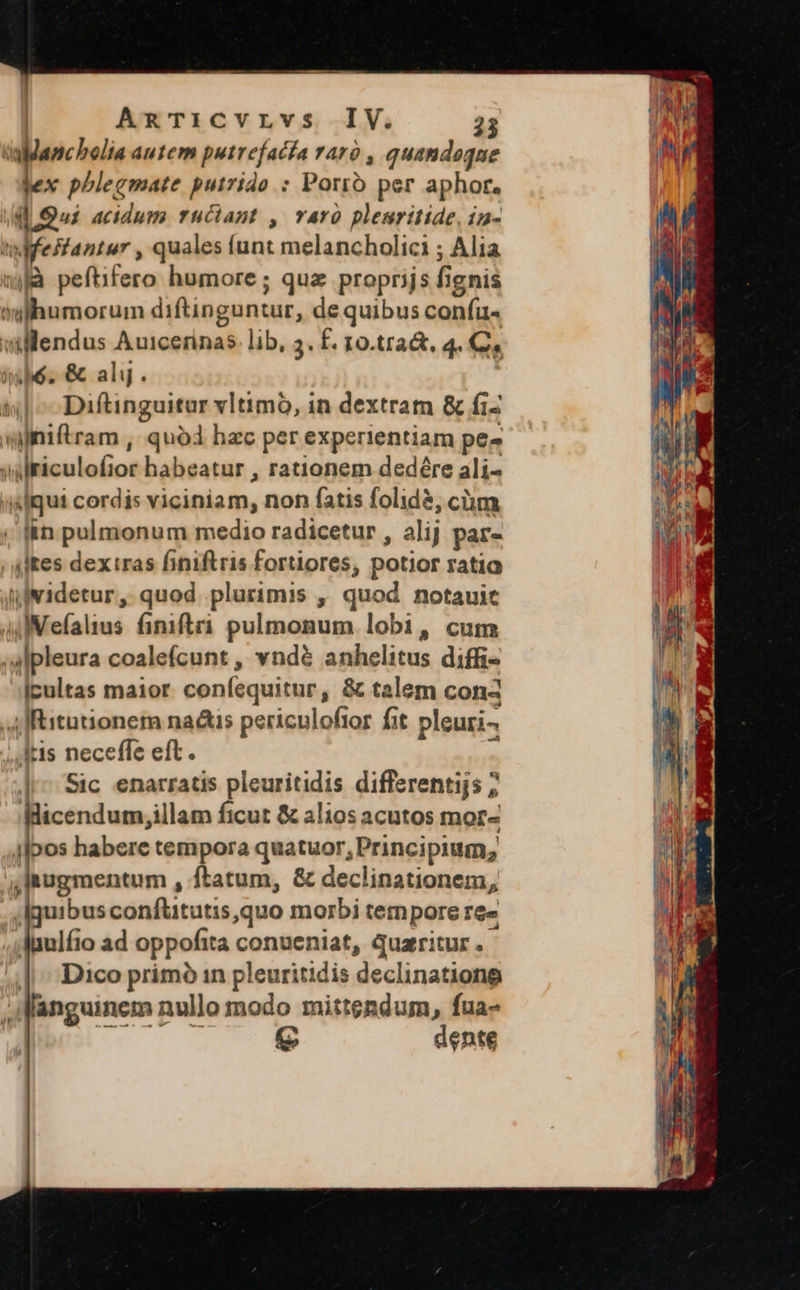 ARTICVLVS IV. 33
lancholia autem putrefacta rarò, quandoque
ex phlegmate putrido : Porrò per aphor.
Qui acidum ructant, rarò pleuritide. in-
festantur, quales ſunt melancholici ; Alia
à peſtifero humore ; quæ proprijs ſignis
humorum diſtinguntur, de quibus conſu-
lendus Auicennas. lib, 3. f. 10.tract. 4. C.
6. & alij.
Diſtinguitur vltimò, in dextram & ſi-
niſtram, quòd hæc per experientiam pe-
riculoſior habeatur, rationem dedêre ali-
qui cordis viciniam, non ſatis ſolidè, cùm
in pulmonum medio radicetur, alij par-
tes dextras ſiniſtris fortiores, potior ratio
videtur, quod plurimis, quod notauit
Veſalius ſiniſtri pulmonum lobi, cum
pleura coaleſcunt, vndè anhelitus diffi-
cultas maior conſequitur, & talem con-
ſtitutionem nactis periculoſior fit pleuri-
tis neceſſe eſt.
Sic enarratis pleuritidis differentijs ;
dicendum,illam ſicut & alios acutos mor-
bos habere tempora quatuor,Principium,
augmentum, ſtatum, & declinationem,
quibus conſtitutis,quo morbi tempore re-
uulſio ad oppoſita conueniat, quæritur.
Dico primò in pleuritidis declinatione
ſanguinem nullo modo mittendum, ſua-
dente